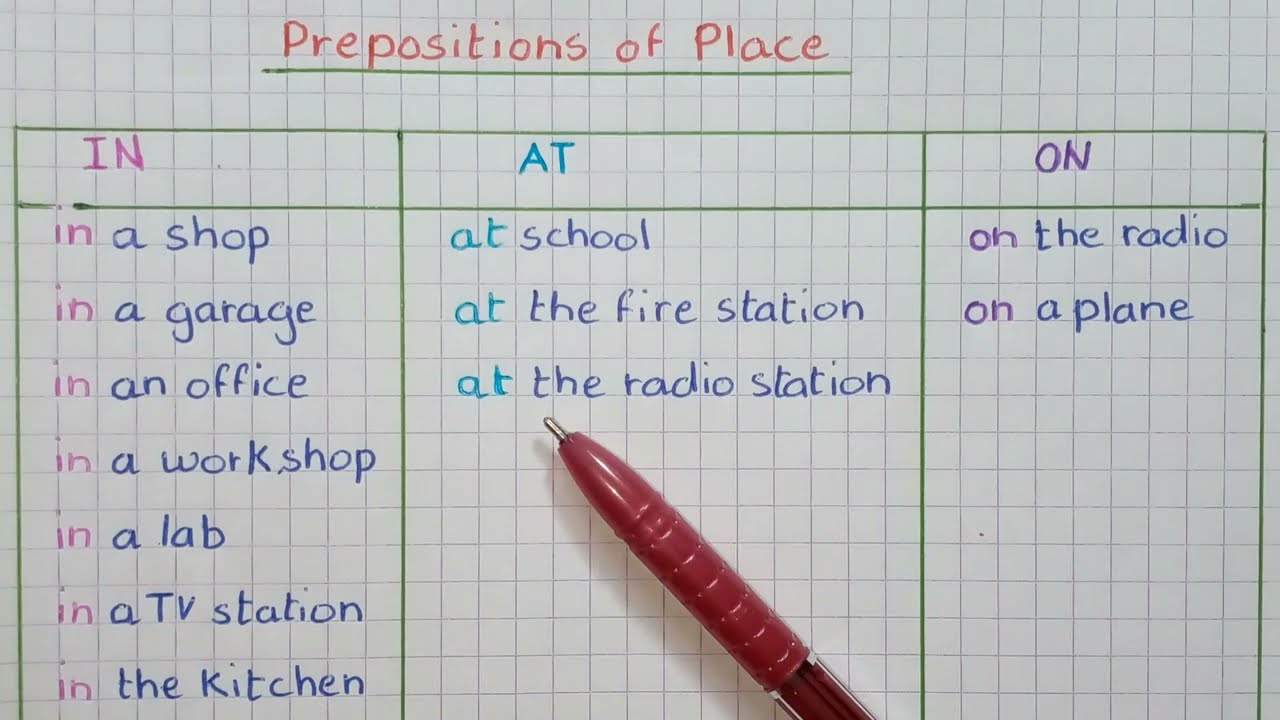 Prepositions of Place
IN
AT
ON
in a shop
at school
on the radio
in a garage
at the fire station
on a plane
in an office
at the radio station
in a workshop
in a lab
in a TV station
in the kitchen